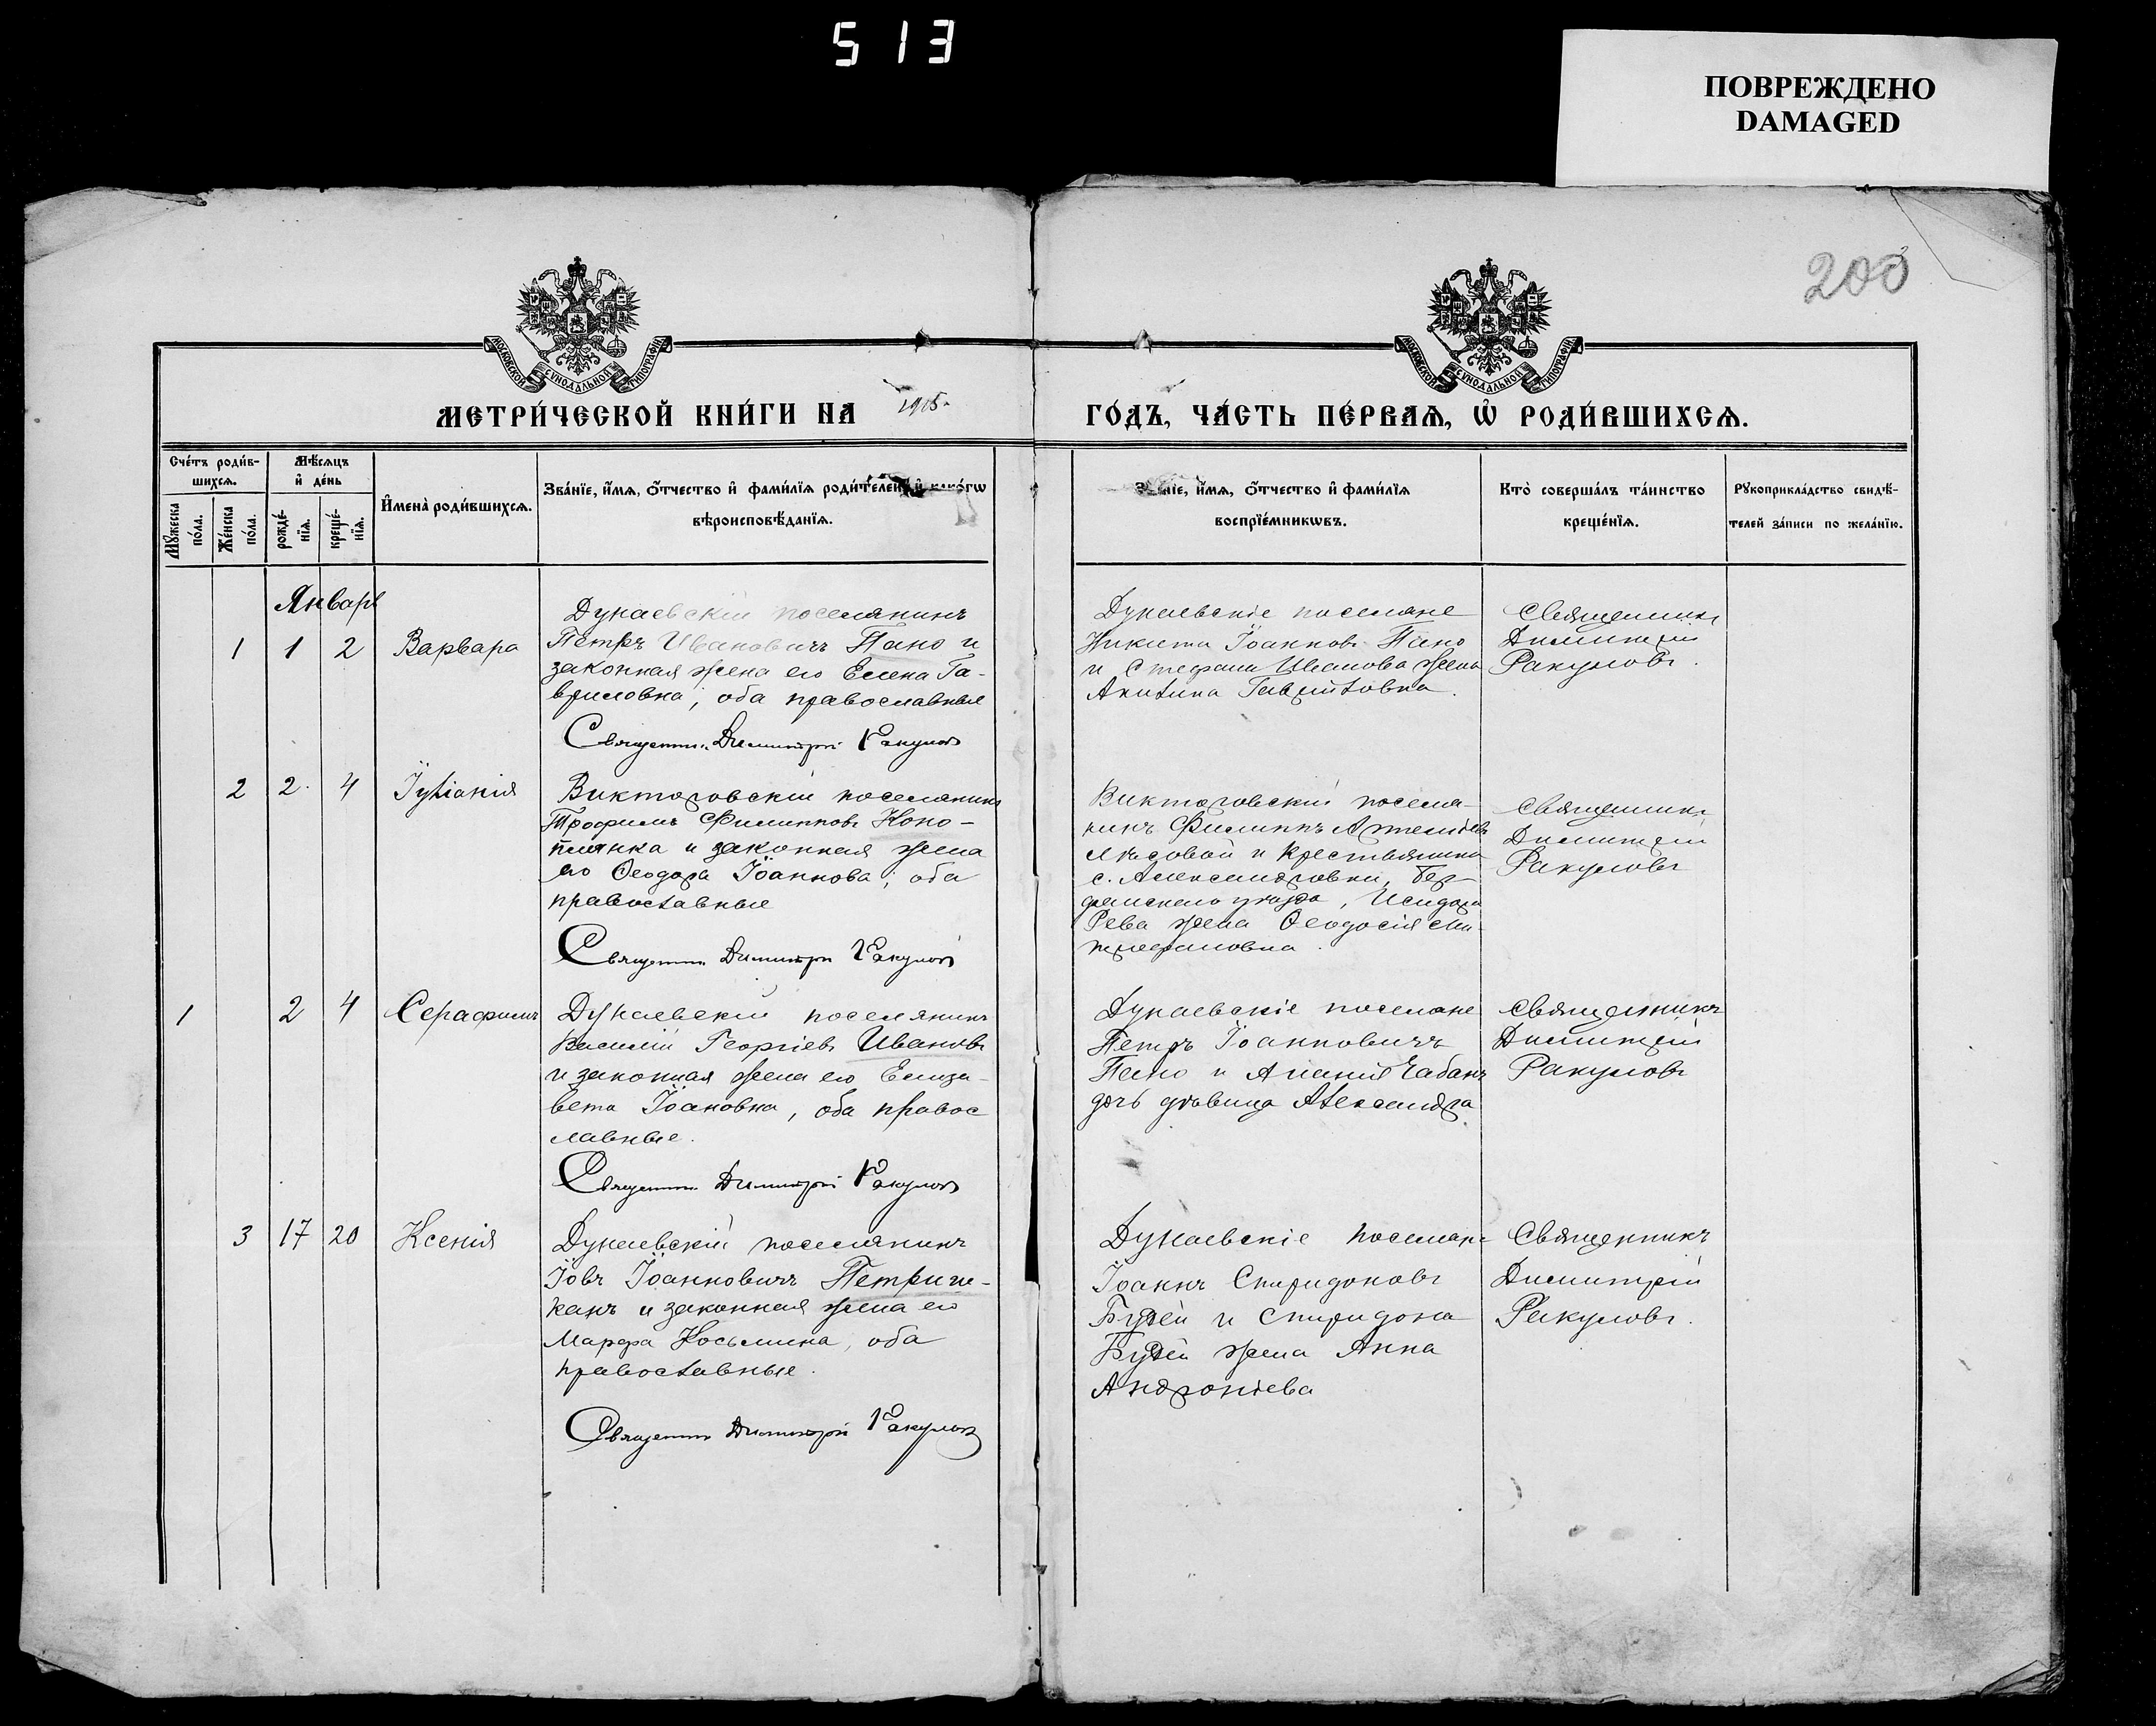 513
ПОВРЕЖДЕНО
DAMAGED
200
МОСКОВСКОЙ СѴНОДАЛЬНОЙ ТИПОГРАФІИ
МОСКОВСКОЙ СѴНОДАЛЬНОЙ ТИПОГРАФІИ
МЕТРИ́ЧЕСКОЙ КНИ́ГИ НА 1915
ГО́ДЪ, ЧА́СТЬ ПЕ́РВАѦ, Ѡ҆ РОДИ́ВШИХСѦ.
Сче́тъ роди́в-
шихсѧ.
Мѣ́сѧцъ
и҆ де́нь
Мꙋ́жеска
по́ла.
Же́нска
по́ла.
рожде́-
нїѧ.
креще́-
нїѧ.
И҆мена̀ роди́вшихсѧ.
Зва́нїе, и҆́мѧ, ѻ҆́тчество и҆ фами́лїѧ роди́телей и҆ како́гѡ
вѣроисповѣ́данїѧ.
Зва́нїе, и҆́мѧ, ѻ҆́тчество и҆ фами́лїѧ
воспрїе́мникѡвъ.
Кто̀ соверша́лъ та́инство
креще́нїѧ.
Рꙋкоприкла́дство свидѣ́-
телей за́писи по жела́нїю.
Январь
1 1 2 Варвара
Дунаевскій поселянинъ
Петръ Ивановичъ Пано и
законная жена его Елена Га-
вриловна; оба православные
Священни. Димитрій Ракуловъ
Дунаевскіе поселяне
Никита Іоанновъ Пано
и Стефана Иванова жена
Акилина Гавріиловна.
Священникъ
Димитрій
Ракуловъ.
2 2. 4 Іуліанія
Викторовскій поселянинъ
Трофимъ Филипповъ Коно-
плянка и законная жена
его Ѳеодора Іоаннова; оба
православные
Священни Димитрій Ракуловъ
Викторовскій поселя-
нинъ Филиппъ Артеміевъ
и крестьянина
с. Александровки, Бер-
дянскаго уѣзда, Исидора
Рева жена Ѳеодосія Ми-
трофановна.
Священникъ
Димитрій
Ракуловъ
1 2 4 Серафимъ
Дунаевскій поселянинъ
Василій Георгіевъ Ивановъ
и законная жена его Елиза-
вета Іоановна, оба правос
лавные.
Священни Димитрій Ракуловъ
Дунаевскіе поселяне
Петръ Іоанновичъ
Пано и Ананія Чабанъ
дочь дѣвица Александра
Священникъ
Димитрій
Ракуловъ
3 17 20 Ксенія
Дунаевскій поселянинъ
Іовъ Іоанновичъ Петриче-
канъ и законная жена его
Марфа Косьмина, оба
православные.
Священни Димитрій Ракуловъ
Дунаевскіе поселяне
Іоаннъ Спиридоновъ
Будей и Спиридона
Будей жена Анна
Андроніева
Священникъ
Димитрій
Ракуловъ.